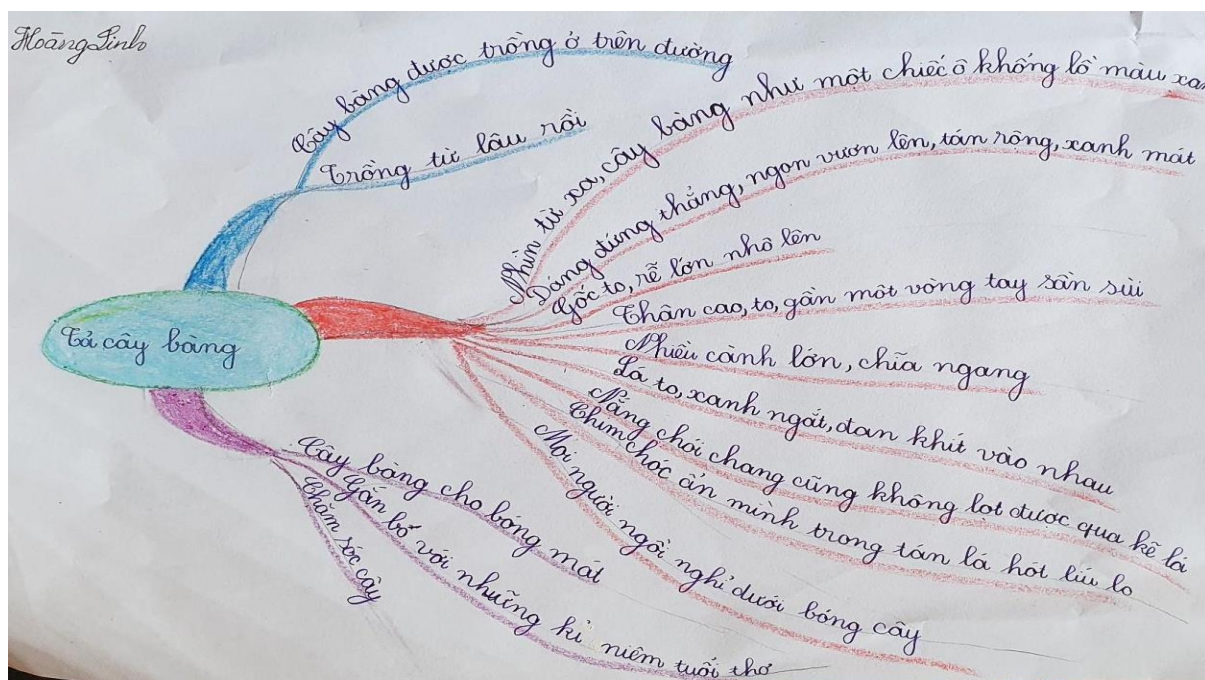 Hoàng Linh
Cây bàng được trồng ở trên đường
Trồng từ lâu rồi
Tả cây bàng
Nhìn từ xa, cây bàng như một chiếc ô khổng lồ màu xa
Dáng đứng thẳng, ngọn vươn lên, tán rộng, xanh mát
Gốc to, rễ lớn nhô lên
Thân cao, to, gần một vòng tay sần sùi
Nhiều cành lớn, chĩa ngang
Lá to, xanh ngắt, đan khít vào nhau
Nắng chói chang cũng không lọt được qua kẽ lá
Chim chóc ẩn mình trong tán lá hót líu lo
Mọi người ngồi nghỉ dưới bóng cây
Cây bàng cho bóng mát
Gắn bó với những kỉ niệm tuổi thơ
Chăm sóc cây